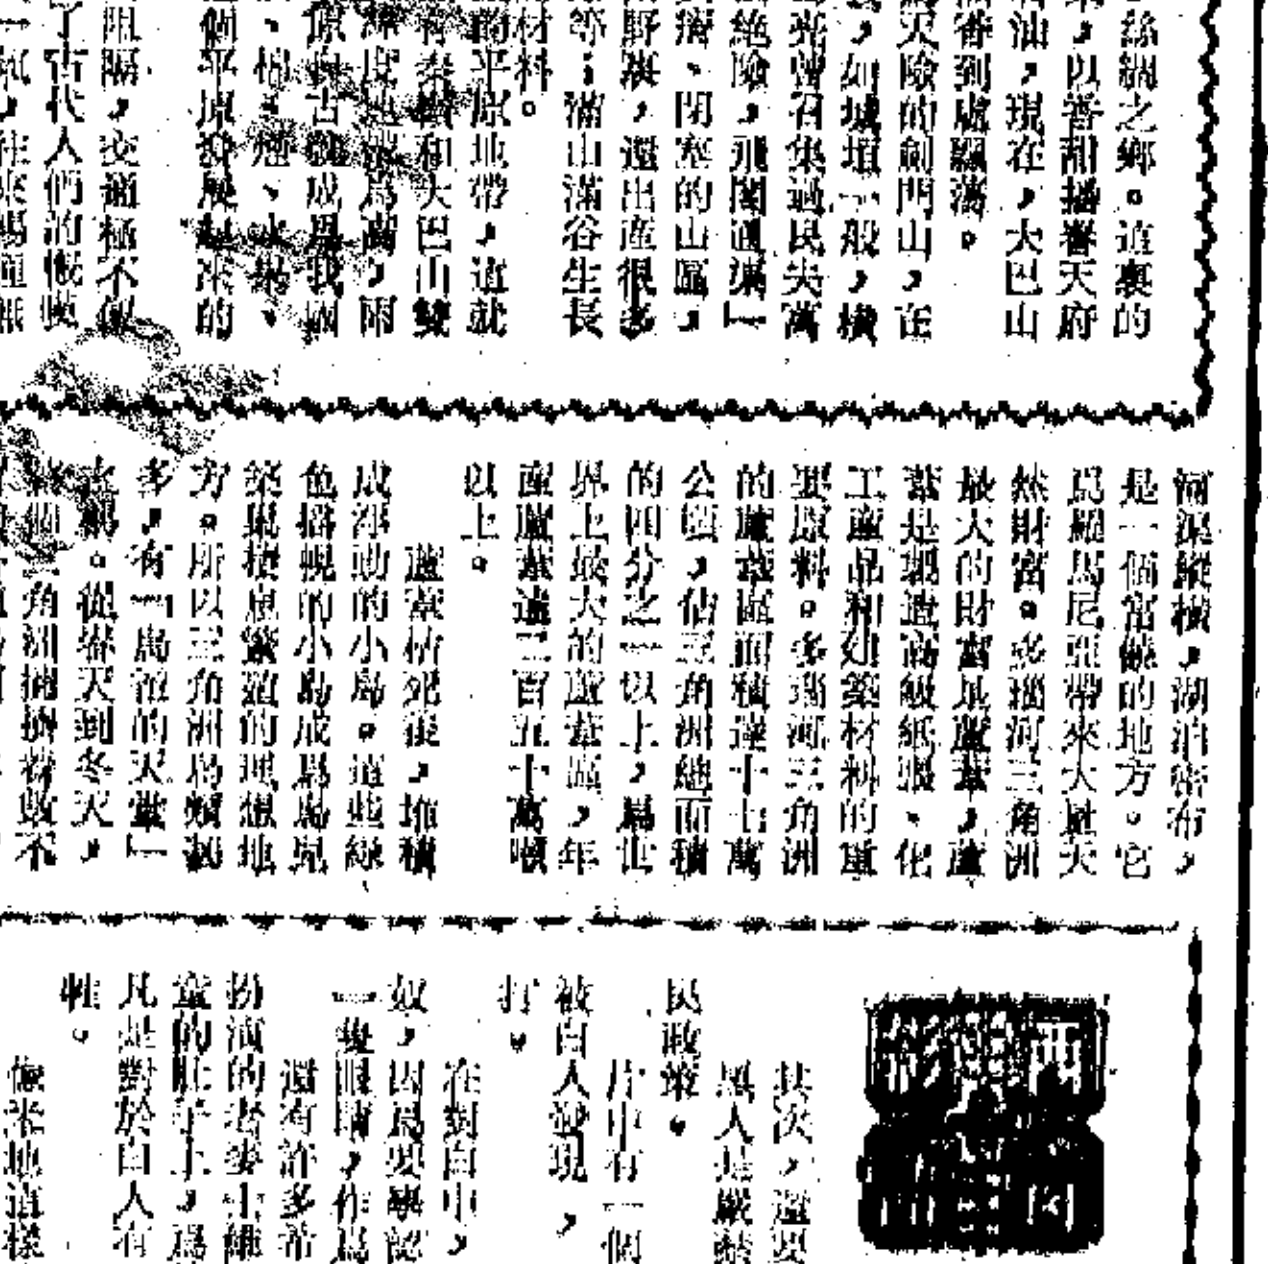 絲綢之鄉。這裏的
,以香甜播譽天府
油,現在,大巴山
香到處飄蕩。
天險的劍門山,在
,如城垣一般,橫
亮曾召集過民夫萬
絕險,飛閣通衢」
瘠、閉塞的山區,
野棗,還出產很多
等;滿山滿谷生長
材料。
的平原地帶,這就
有秦嶺和大巴山雙
度地帶爲高,雨
原自古就成爲我國
、棉、煙、水果、
個平原發展起來的
阻隔,交通極不便
了古代人們的慨嘆
一氣,往來暢通無
河渠縱橫,湖泊密布,
是一個富饒的地方。它
爲羅馬尼亞帶來大量天
然財富。多瑙河三角洲
最大的財富是蘆葦,蘆
葦是製造高級紙張、化
工產品和建築材料的重
要原料。多瑙河三角洲
的蘆葦區面積達十七萬
公頃,佔三角洲總面積
的四分之一以上,爲世
界上最大的蘆葦區,年
產蘆葦達二百五十萬噸
以上。
蘆葦枯死後,堆積
成浮動的小島。這些綠
色搖幌的小島成爲鳥兒
築巢棲息繁殖的理想地
方。所以三角洲鳥類極
多,有「鳥類的天堂」
之稱。從春天到冬天,
個三角洲擁擠着數不
其次,還要
黑人是嚴禁
民政策。
片中有一個
被白人發現,
打。
在對白中,
奴,因爲要學認
一雙眼睛,作爲
還有許多希
扮演的老麥士維
童的肚子上,爲
凡是對於白人有
牲。
像米地這樣